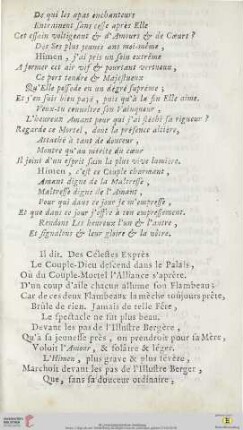 De qui les apas enchanteurs
Entrainent sans cesse après Elle
Cet essein voltigeant & d'Amours & de Cœurs?
Dès Ses plus jeunes ans moi-même,
Himen, j'ai pris un soin extrême
A former cet air vif & pourtant vertueux,
Ce port tendre & Majestueux
Qu'Elle possede en un degré suprème;
Et j'en suis bien payé, puis qu'à la fin Elle aime.
Veux-tu connoître son Vainqueur,
L'heureux Amant pour qui j'ai fléchi sa rigueur?
Regarde ce Mortel, dont la présence altière,
Attachée à tant de douceur,
Montre qu'au mérite du cœur
Il joint d'un esprit sain la plus vive lumière.
Himen, c'est ce Couple charmant,
Amant digne de la Maîtresse,
Maîtresse digne de l'Amant,
Pour qui dans ce jour je m'empresse,
Et que dans ce jour j'offre à ton empressement.
Rendons Les heureux l'un & l'autre,
Et signalons & leur gloire & la nôtre.
Il dit. Des Célestes Esprès
Le Couple-Dieu descend dans le Palais,
Où du Couple-Mortel l'Alliance s'aprête.
D'un coup d'aîle chacun allume son Flambeau;
Car de ces deux Flambeaux la mèche toûjours prête,
Brûle de rien. Jamais de telle Fête,
Le spectacle ne fût plus beau.
Devant les pas de l'Illustre Bergère,
Qu'à sa jeunesse près, on prendroit pour sa Mère,
Voloit l'Amour, & folâtre & léger.
L'Himen, plus grave & plus sévère,
Marchoit devant les pas de l'Illustre Berger,
Que, sans sa douceur ordinaire,